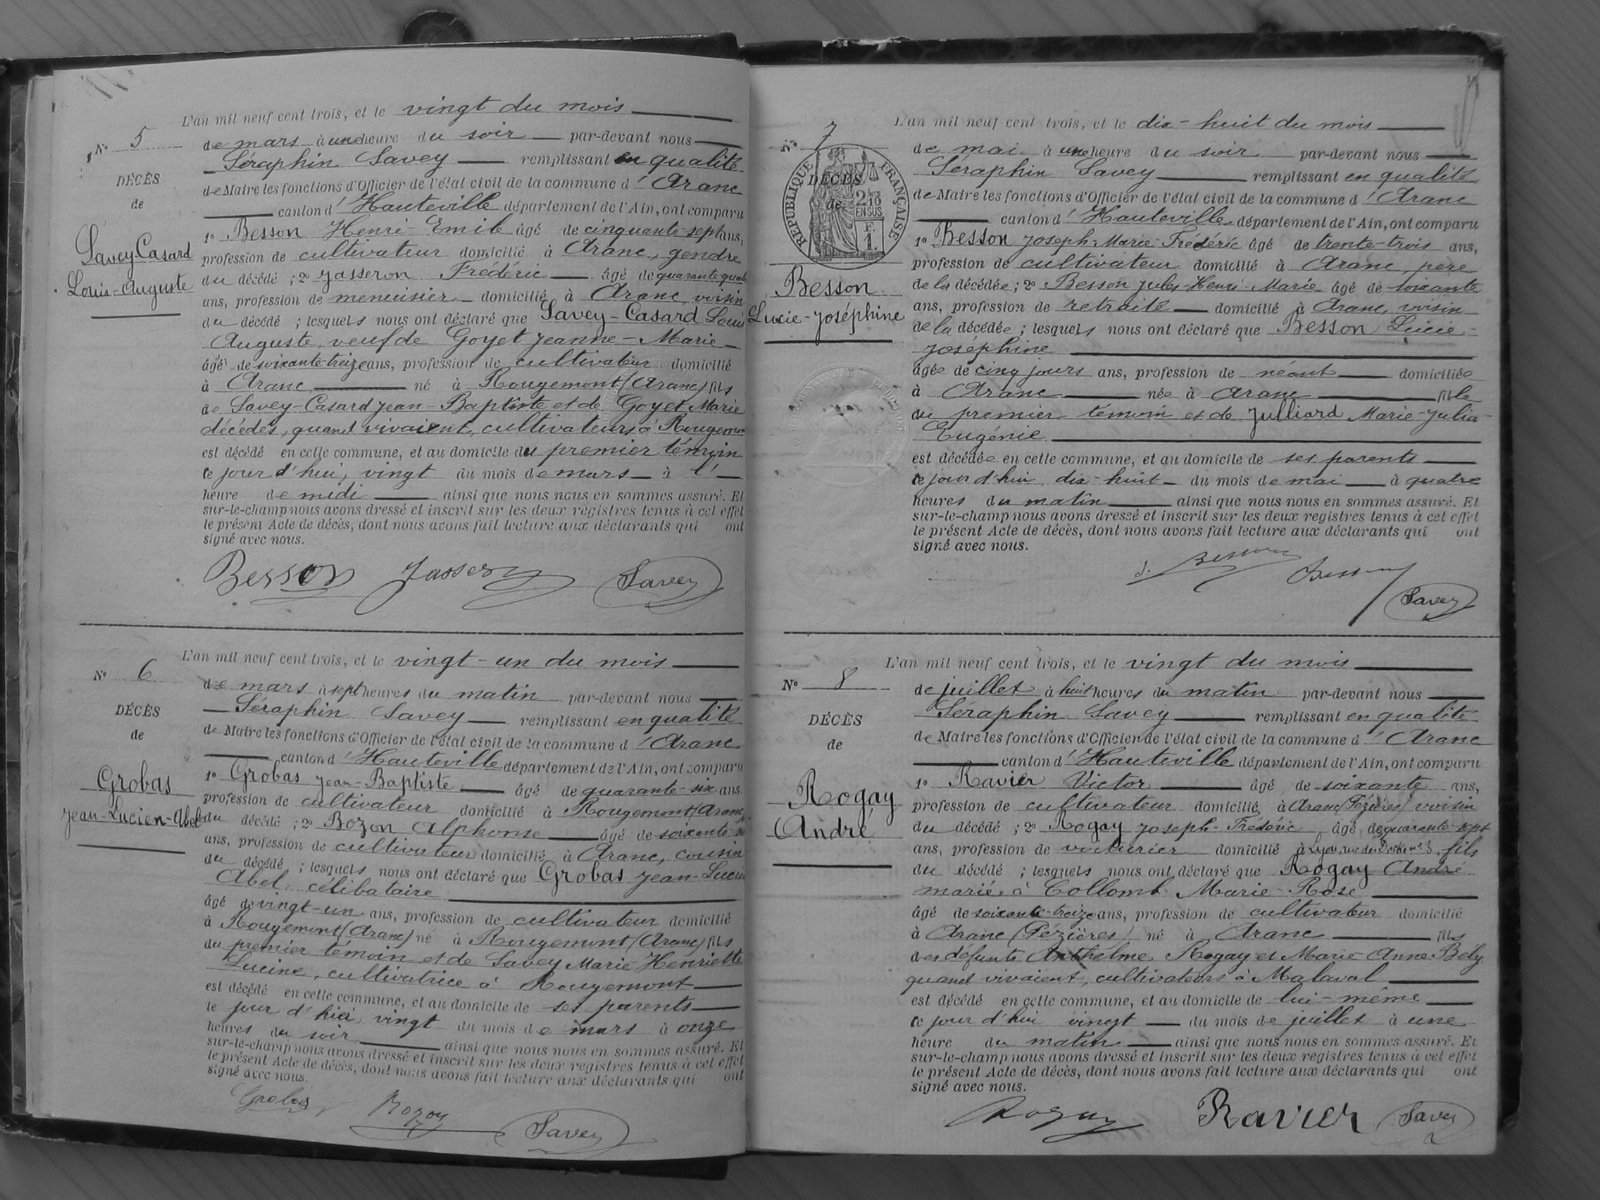 L'an mil neuf cent trois, et le vingt du mois
N° 5
de mars à une heure du soir par-devant nous
Séraphin Savey remplissant en qualité
DÉCÈS
de Maire les fonctions d'Officier de l'état civil de la commune d'Aranc
de
canton d'Hauteville département de l'Ain, ont comparu
Savey-Casard
Louis-Auguste
1° Besson Henri Emile âgé de cinquante sept ans,
profession de cultivateur domicilié à Aranc, gendre
du décédé ; 2° Jasseron Frédéric âgé de quarante quat
ans, profession de menuisier domicilié à Aranc, voisin
du décédé ; lesquels nous ont déclaré que Savey-Casard Louis
Auguste, veuf de Goyet Jeanne-Marie
âgé de soixante-treize ans, profession de cultivateur domicilié
à Aranc né à Rougemont (Aranc) fils
de Savey-Casard Jean-Baptiste et de Goyet Marie
décédés, quand vivaient, cultivateurs à Rougemont
est décédé en cette commune, et au domicile du premier témoin
ce jour d'hui, vingt du mois de mars à l'
heure de midi ainsi que nous nous en sommes assuré. Et
sur-le-champ nous avons dressé et inscrit sur les deux registres tenus à cet effet
le présent Acte de décès, dont nous avons fait lecture aux déclarants qui ont
signé avec nous.
Besson Jasseron Savey
L'an mil neuf cent trois, et le vingt-un du mois
N° 6
de mars à sept heures du matin par-devant nous
Séraphin Savey remplissant en qualité
DÉCÈS
de Maire les fonctions d'Officier de l'état civil de la commune d'Aranc
de
canton d'Hauteville département de l'Ain, ont comparu
Grobas
Jean-Lucien-Abel
1° Grobas Jean-Baptiste âgé de quarante-six ans
profession de cultivateur domicilié à Rougemont (Aranc)
du décédé ; 2° Bozon Alphonse âgé de soixante
ans, profession de cultivateur domicilié à Aranc, cousin
du décédé ; lesquels nous ont déclaré que Grobas Jean-Lucien
Abel, célibataire
âgé de vingt-un ans, profession de cultivateur domicilié
à Rougemont (Aranc) né à Rougemont (Aranc) fils
du premier témoin et de Savey Marie Henriette
Lucine, cultivatrice à Rougemont
est décédé en cette commune, et au domicile de ses parents
le jour d'hier vingt du mois de mars à onze
heures du soir ainsi que nous nous en sommes assuré. Et
sur-le-champ nous avons dressé et inscrit sur les deux registres tenus à cet effet
le présent Acte de décès, dont nous avons fait lecture aux déclarants qui ont
signé avec nous.
Grobas Bozon Savey
L'an mil neuf cent trois, et le dix-huit du mois
N° 7
de mai à une heure du soir par-devant nous
Séraphin Savey remplissant en qualité
RÉPUBLIQUE FRANÇAISE
2/10 EN SUS
F. 1.
DÉCÈS
de
de Maire les fonctions d'Officier de l'état civil de la commune d'Aranc
canton d'Hauteville département de l'Ain, ont comparu
Besson
Lucie-Joséphine
1° Besson Joseph-Marie-Frédéric âgé de trente-trois ans,
profession de cultivateur domicilié à Aranc, père
de la décédée ; 2° Besson Jules-Henri-Marie âgé de soixante
ans, profession de retraité domicilié à Aranc, voisin
de la décédée ; lesquels nous ont déclaré que Besson Lucie-
Joséphine
âgée de cinq jours ans, profession de néant domiciliée
à Aranc née à Aranc fille
du premier témoin et de Julliard Marie-Julia-
Eugénie
est décédée en cette commune, et au domicile de ses parents
ce jour d'hui dix-huit du mois de mai à quatre
heures du matin ainsi que nous nous en sommes assuré. Et
sur-le-champ nous avons dressé et inscrit sur les deux registres tenus à cet effet
le présent Acte de décès, dont nous avons fait lecture aux déclarants qui ont
signé avec nous.
J. Besson Besson Savey
L'an mil neuf cent trois, et le vingt du mois
N° 8
de juillet à huit heures du matin par-devant nous
Séraphin Savey remplissant en qualité
DÉCÈS
de Maire les fonctions d'Officier de l'état civil de la commune d'Aranc
de
canton d'Hauteville département de l'Ain, ont comparu
Rogay
André
1° Ravier Victor âgé de soixante ans,
profession de cultivateur domicilié à Aranc (Pézières) voisin
du décédé ; 2° Rogay Joseph-Frédéric âgé de quarante-sept
ans, profession de voiturier domicilié à Lyon, fils
du décédé ; lesquels nous ont déclaré que Rogay André
marié à Collomb Marie-Rose
âgé de soixante-treize ans, profession de cultivateur domicilié
à Aranc (Pézières) né à Aranc fils
des défunts Anthelme Rogay et Marie Anne Bély
quand vivaient, cultivateurs à Malaval
est décédé en cette commune, et au domicile de lui-même
ce jour d'hui vingt du mois de juillet à une
heure du matin ainsi que nous nous en sommes assuré. Et
sur-le-champ nous avons dressé et inscrit sur les deux registres tenus à cet effet
le présent Acte de décès, dont nous avons fait lecture aux déclarants qui ont
signé avec nous.
Rogay Ravier Savey